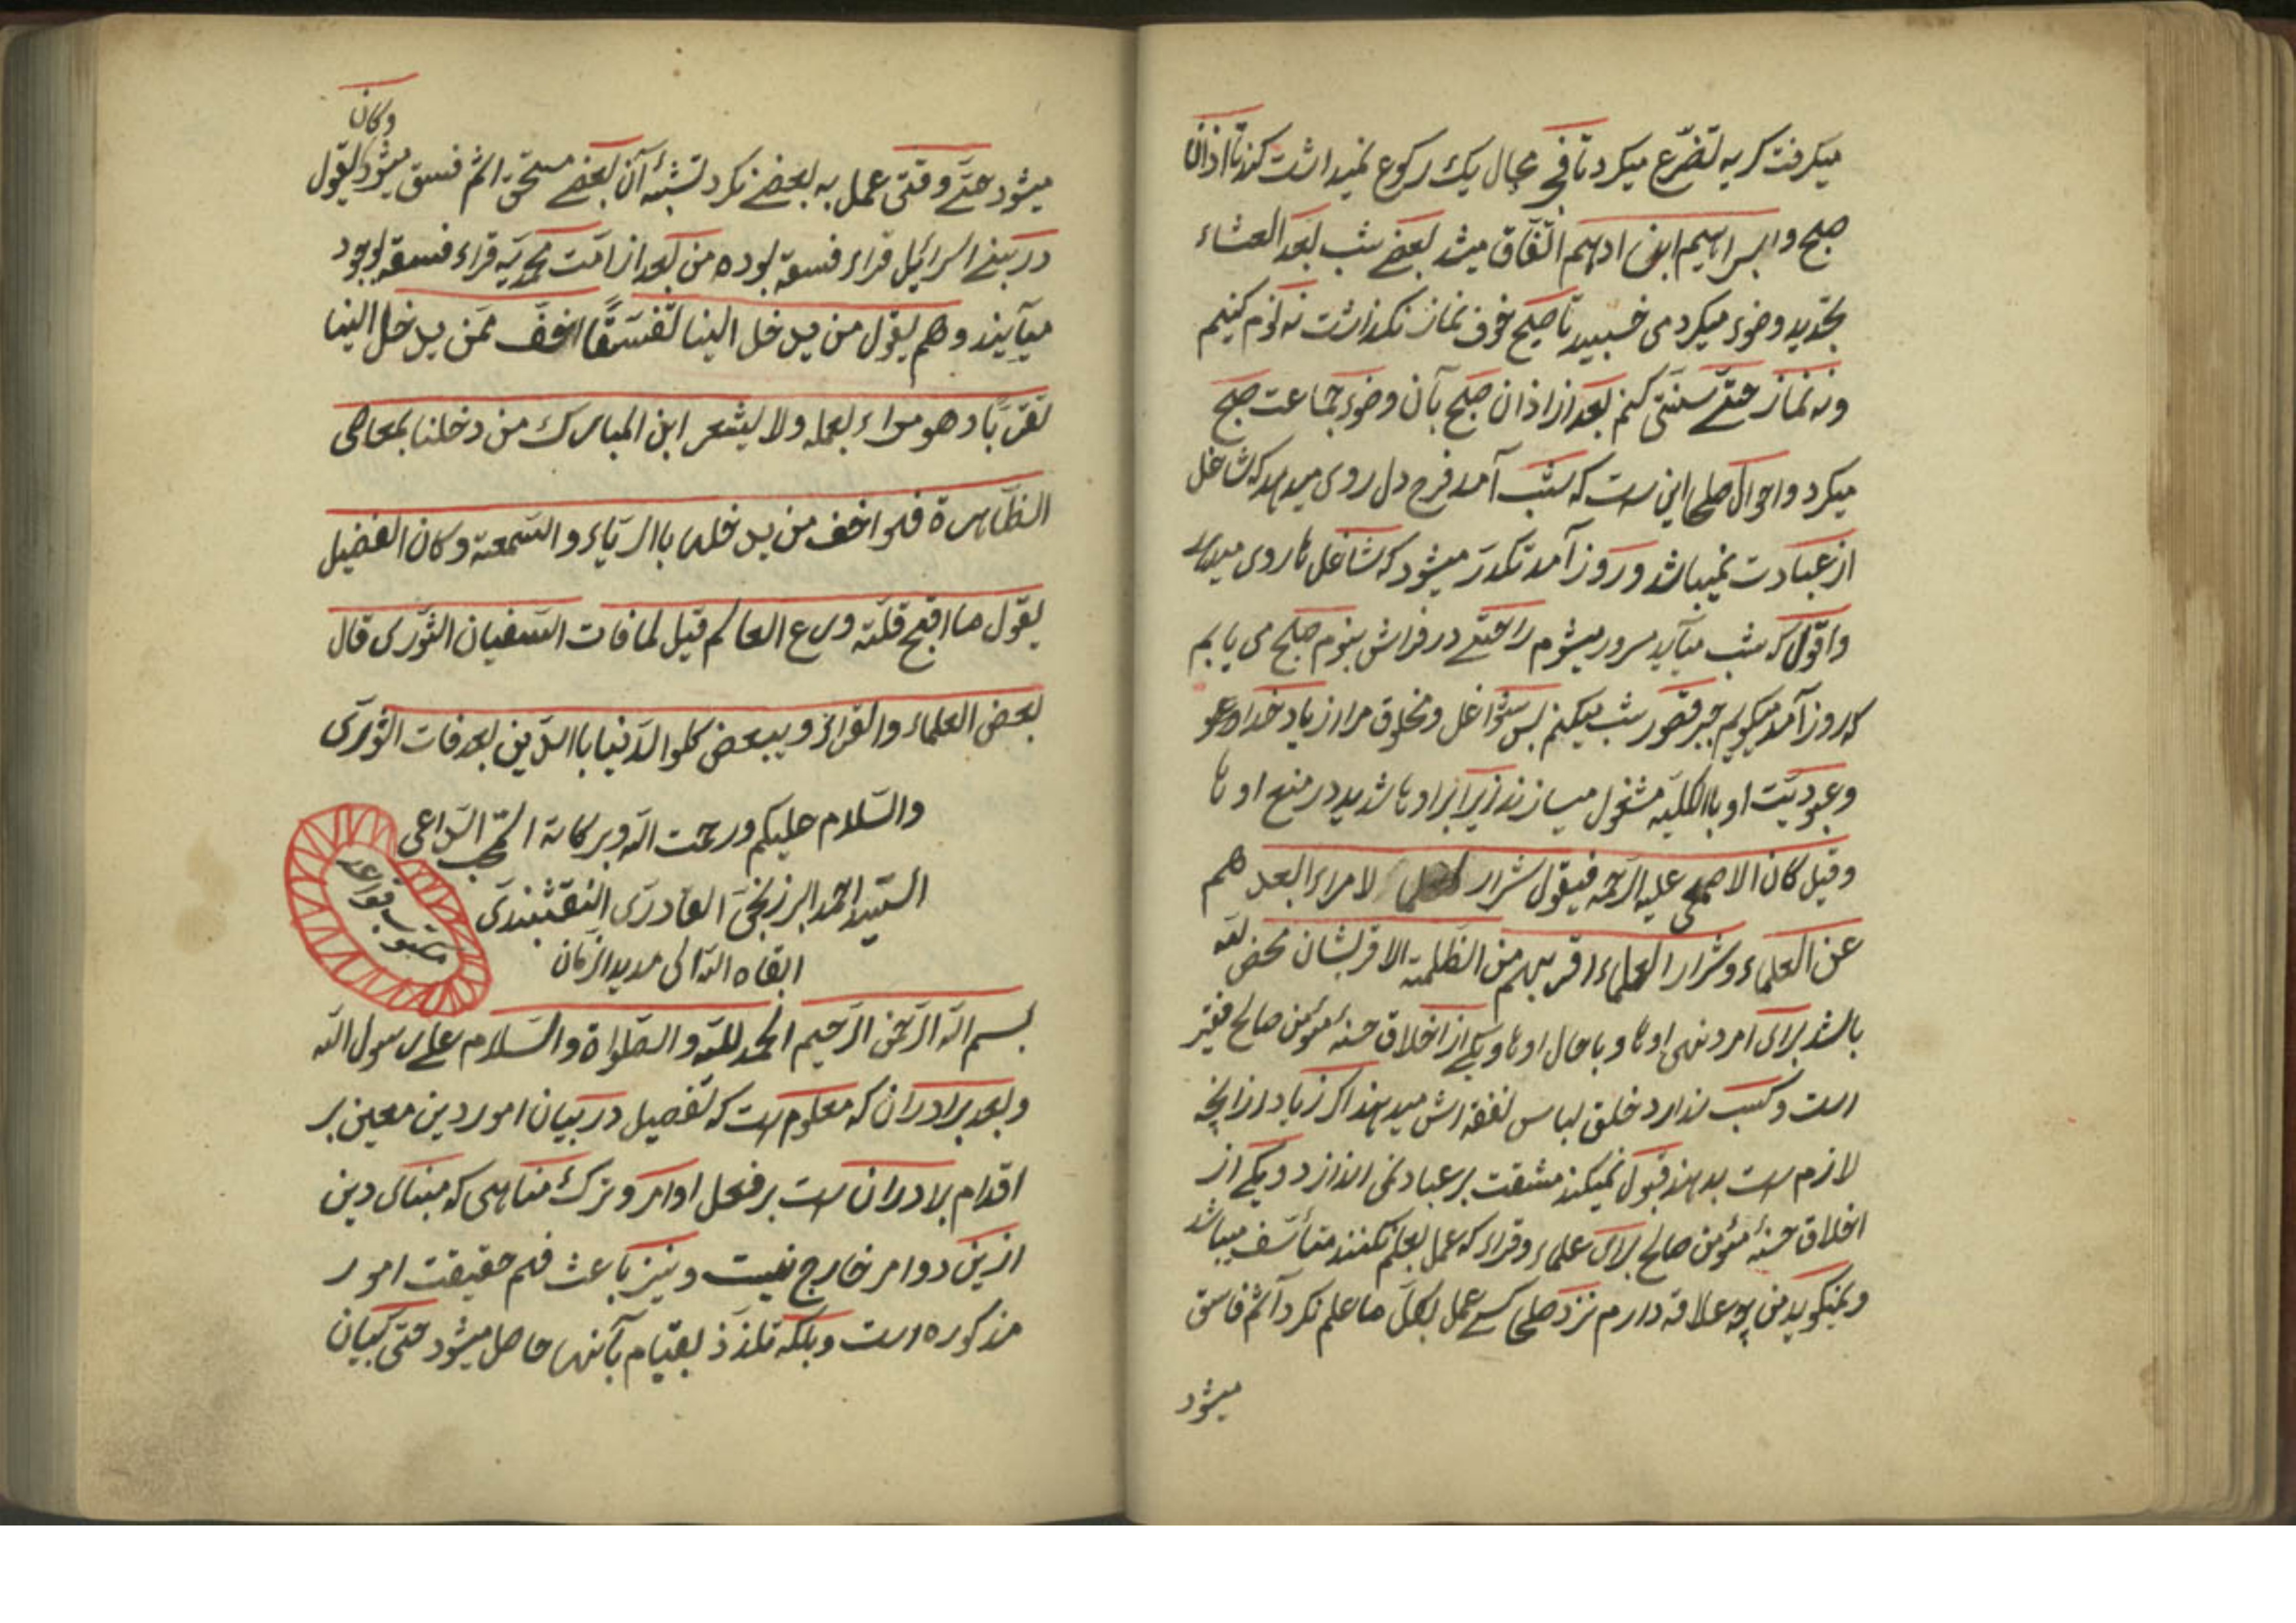 میکرفت کریه تضرّع میکرد تا فجر مجال یک رکوع نمیداشت کند تا اذان
صبح و ابراهیم ابن ادهم اتّفاق میشد بعضے شب بعد العشاء
تجدید وضوء میکرد می خسبید تا صبح خوف نماز نکذاشت نه نوم کنیم
ونه نماز حتّے سنّتی کنم بعد از اذان صبح بآن وضوء جماعت صبح
میکرد و احوال صلحا اینست که شب آمد فرح دل روی میدهد که شاغل
از عبادت نمیباشد و روز آمد تکدر میشود که شاغل ها روی میدهد
واقول که شب میآید مسرور میشوم راحتے در فراش بنوم صلح می یابم
که روز آمد میکویم جبر قصور شب میکنم بس شواغل ومخلوق مرا از یاد خدا و
وعبودیّت او باالکلّیه مشغول میسازند زیرا برادرها شدید در منع او ها
وقیل کان الاصمعی علیه الرّحمه فیقول شرار لامراء ابعدهم
عن العلماء وشرار العلماء اقربهم من الظلمة الا قربشان محض لله
باشد برای امر ونهی اوها و با حال اوها ویکے از اخلاق حسنهٔ مؤمن صالح فقیر
است وکسب ندارد خلق لباس نفقه اش میدهند اکر زیاد از آنچه
لازم است بدهند قبول نمیکند مشقت بر عباد نمی اندازد و یکے از
اخلاق حسنهٔ مؤمن صالح برای علماء وقراء که عمل بعلم نکنند متأسّف میباشد
ونمیکوید من چه علاقه دارم نزد صلحا کسے عمل بکل ما علم نکرد آثم فاسق
میشود
وکان
میشود حتّے وقتی عمل به بعضے نکرد نسبهٔ آن بعضے مستحق اثم فسق میشود یقول
در بنے اسرائیل قراء فسقه بوده من بعد از امّت محمدیّه قراء فسقه بوجود
میآیند وهم یقول من یدخل الینا تفسّقًا اخفّ ممّن یدخل الینا
تقرّبًا وهو مراء بعمله ولا یشعر ابن المبارک من دخلنا بمعاصی
الظاهرة فهو اخف من یدخلها باالرّیاء والسّمعة وکان الفضیل
یقول ما اقبح قلّة ورع العالم قیل لما فات السفیان الثّوری قال
بعض العلماء والقراء وببعض کلوا الدّنیا باالدّین بعد فات الثّوری
والسّلام علیکم ورحمت الله وبرکاته المحب الدّاعی
السّید احمد البرزنجیّ القادریّ النقشبندیّ
ابقاه الله الی مدید الزّمان
بسم الله الرّحمن الرّحیم الحمد لله والصّلواة والسّلام علی رسول الله
وبعد برادران که معلوم است که تفصیل در بیان امور دین معین بر
اقدام برادران است بر فعل اوامر وترک مناهی که مبنای دین
ازین دو امر خارج نیست ونیز باعث فهم حقیقت امور
مذکوره است وبلکه تلذّذ بقیام بآنها حاصل میشود حتّی بیان